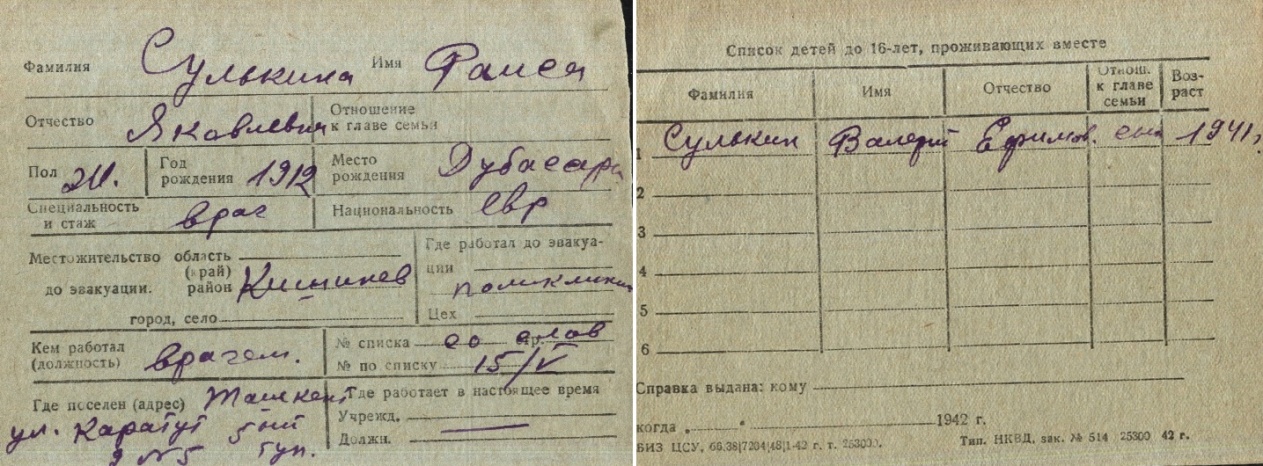 Фамилия Сулькина Имя Фаися
Отчество Яковлевна Отношение к главе семьи
Пол Ж. Год рождения 1912 Место рождения Дубасары
Специальность и стаж врач Национальность евр
Местожительство область (край)
до эвакуации. район Кишинев
город, село
Где работал до эвакуации поликлиника
Цех
Кем работал (должность) врачем.
№ списка со слов стр.
№ по списку 15/V
Где поселен (адрес) Ташкент
ул. Каратут 5 ый туп.
Где работает в настоящее время
Учрежд.
Должн.
Список детей до 16-лет, проживающих вместе
Фамилия Имя Отчество Отнош. к главе семьи Возраст
1 Сулькин Валерий Ефимов. сын 1941 г.
2
3
4
5
6
Справка выдана: кому
когда 1942 г.
БИЗ ЦСУ, Тип. НКВД, зак. № 514 25300 42 г.